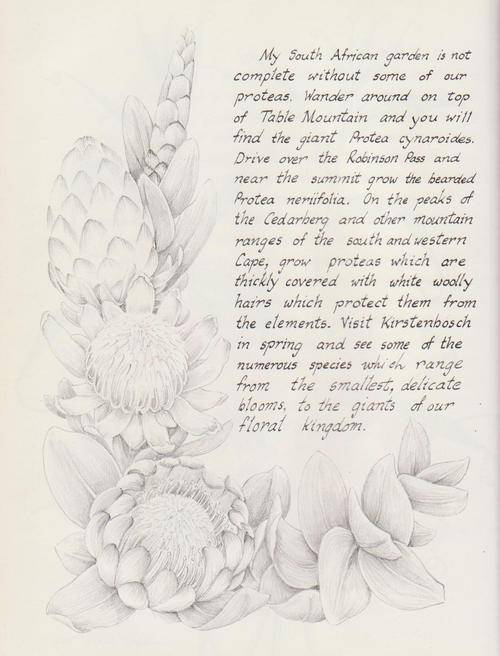 My South African garden is not
complete without some of our
proteas. Wander around on top
of Table Mountain and you will
find the giant Protea cynaroides.
Drive over the Robinson Pass and
near the summit grow the bearded
Protea neriifolia. On the peaks of
the Cedarberg and other mountain
ranges of the south and western
Cape, grow proteas which are
thickly covered with white woolly
hairs which protect them from
the elements. Visit Kirstenbosch
in spring and see some of the
numerous species which range
from the smallest, delicate
blooms, to the giants of our
floral kingdom.